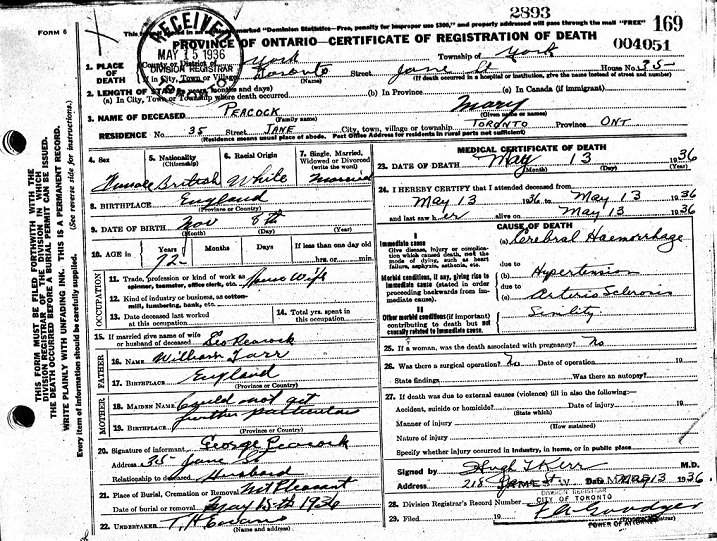 2893
FORM 6
169
PROVINCE OF ONTARIO—CERTIFICATE OF REGISTRATION OF DEATH
004051
RECEIVED
MAY 15 1936
DIVISION REGISTRAR
1. PLACE OF DEATH
County or District of York
Township of York
If in City, Town or Village Toronto (Name)
Street Jane St House No. 35
(If death occurred in a hospital or institution, give the name instead of street and number)
2. LENGTH OF STAY (in years, months and days)
(a) In City, Town or Township where death occurred
(b) In Province
(c) In Canada (if immigrant)
3. NAME OF DECEASED PEACOCK (Family name) Mary (Given name or names)
RESIDENCE No. 35 Street JANE City, town, village or township TORONTO Province ONT
(Residence means usual place of abode. Post Office Address for residents in rural parts not sufficient)
4. Sex Female
5. Nationality (Citizenship) British
6. Racial Origin White
7. Single, Married, Widowed or Divorced (write the word) Married
8. BIRTHPLACE England
(Province or Country)
9. DATE OF BIRTH Nov 8th
(Month) (Day) (Year)
10. AGE in Years 72 Months Days If less than one day old hrs. or min.
OCCUPATION
11. Trade, profession or kind of work as spinner, teamster, office clerk, etc. House Wife
12. Kind of industry or business, as cotton-mill, lumbering, bank, etc.
13. Date deceased last worked at this occupation
14. Total yrs. spent in this occupation
15. If married give name of wife or husband of deceased Geo Peacock
FATHER
16. NAME William Tarr
17. BIRTHPLACE England
(Province or Country)
MOTHER
18. MAIDEN NAME Could not get
19. BIRTHPLACE further particulars
(Province or Country)
20. Signature of informant George Peacock
Address 35 Jane St
Relationship to deceased Husband
21. Place of Burial, Cremation or Removal Mt Pleasant
Date of burial or removal May 15th 1936
22. UNDERTAKER
(Name and address)
MEDICAL CERTIFICATE OF DEATH
23. DATE OF DEATH May 13 1936
(Month) (Day) (Year)
24. I HEREBY CERTIFY that I attended deceased from
May 13 1936 to May 13 1936
and last saw her alive on May 13 1936
CAUSE OF DEATH
I
Immediate cause
Give disease, injury or complication which caused death, not the mode of dying, such as heart failure, asphyxia, asthenia, etc.
(a) Cerebral Haemorrhage
due to
Morbid conditions, if any, giving rise to immediate cause (stated in order proceeding backwards from immediate cause).
(b) Hypertension
due to
(c) Arterio Sclerosis
II
Other morbid conditions (if important) contributing to death but not causally related to immediate cause.
Senility
25. If a woman, was the death associated with pregnancy? No
26. Was there a surgical operation? No Date of operation 19
State findings Was there an autopsy?
27. If death was due to external causes (violence) fill in also the following:—
Accident, suicide or homicide? Date of injury 19
(State which)
Manner of injury
(How sustained)
Nature of injury
Specify whether injury occurred in industry, in home, or in public place
Signed by Hugh T Kerr M.D.
Address 218 Date MAY 13 1936
DIVISION REGISTRAR
28. Division Registrar's Record Number CITY OF TORONTO
29. Filed 19
POWER OF ATTORNEY
THIS FORM MUST BE FILED FORTHWITH WITH THE
DIVISION REGISTRAR OF THE DIVISION IN WHICH
THE DEATH OCCURRED BEFORE A BURIAL PERMIT CAN BE ISSUED.
WRITE PLAINLY WITH UNFADING INK. THIS IS A PERMANENT RECORD.
Every item of information should be carefully supplied. (See reverse side for instructions.)